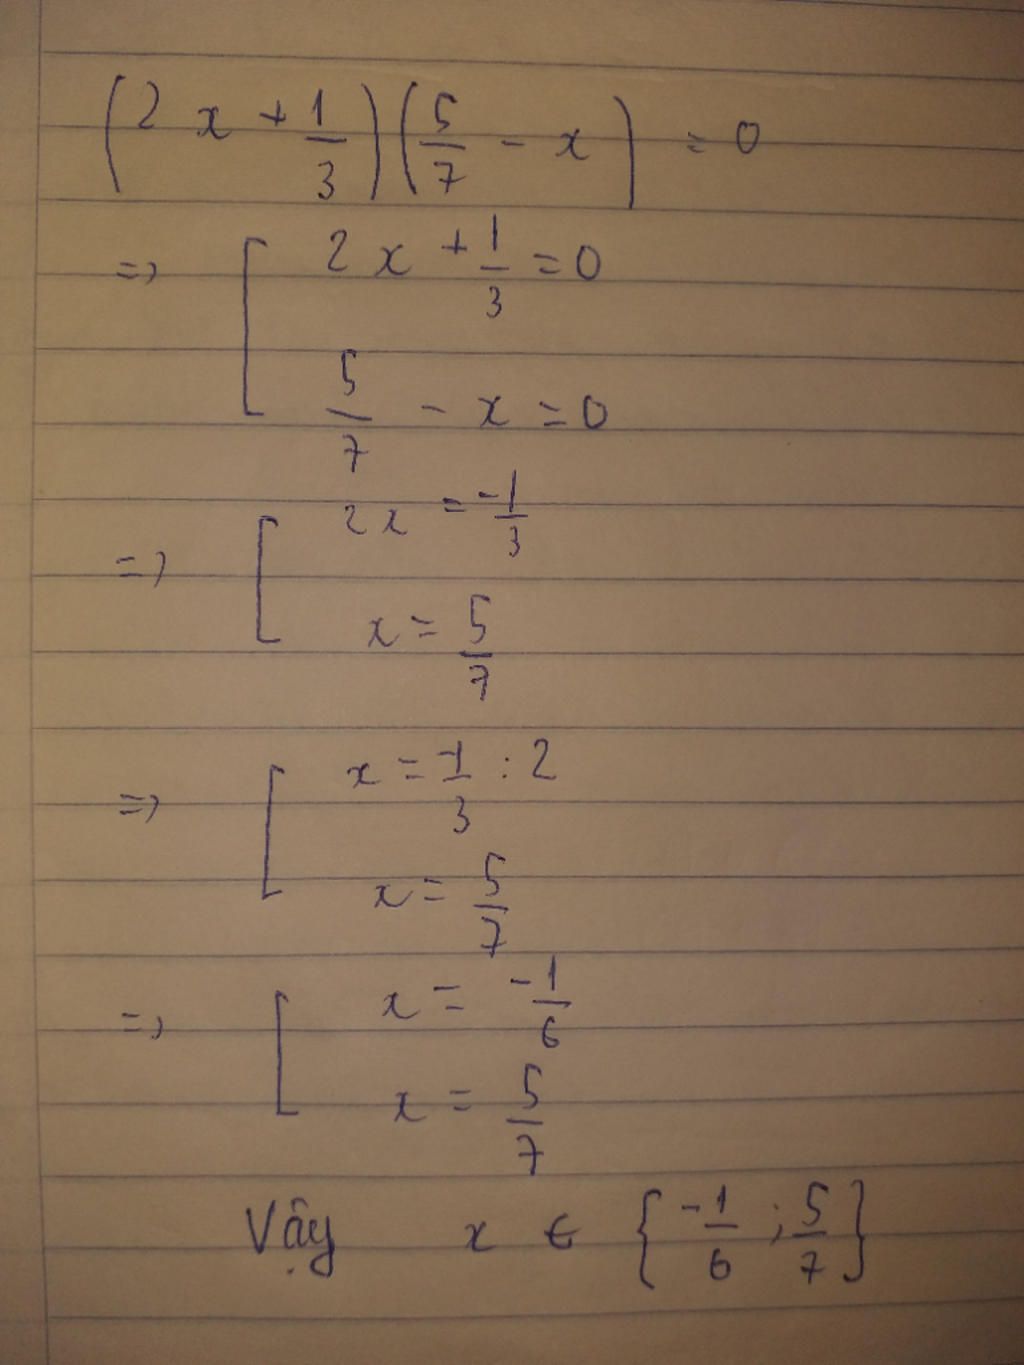 (2x + 1/3)(5/7 - x) = 0
=> [ 2x + 1/3 = 0
5/7 - x = 0
=> [ 2x = -1/3
x = 5/7
=> [ x = -1/3 : 2
x = 5/7
=> [ x = -1/6
x = 5/7
Vậy x ∈ {-1/6 ; 5/7}